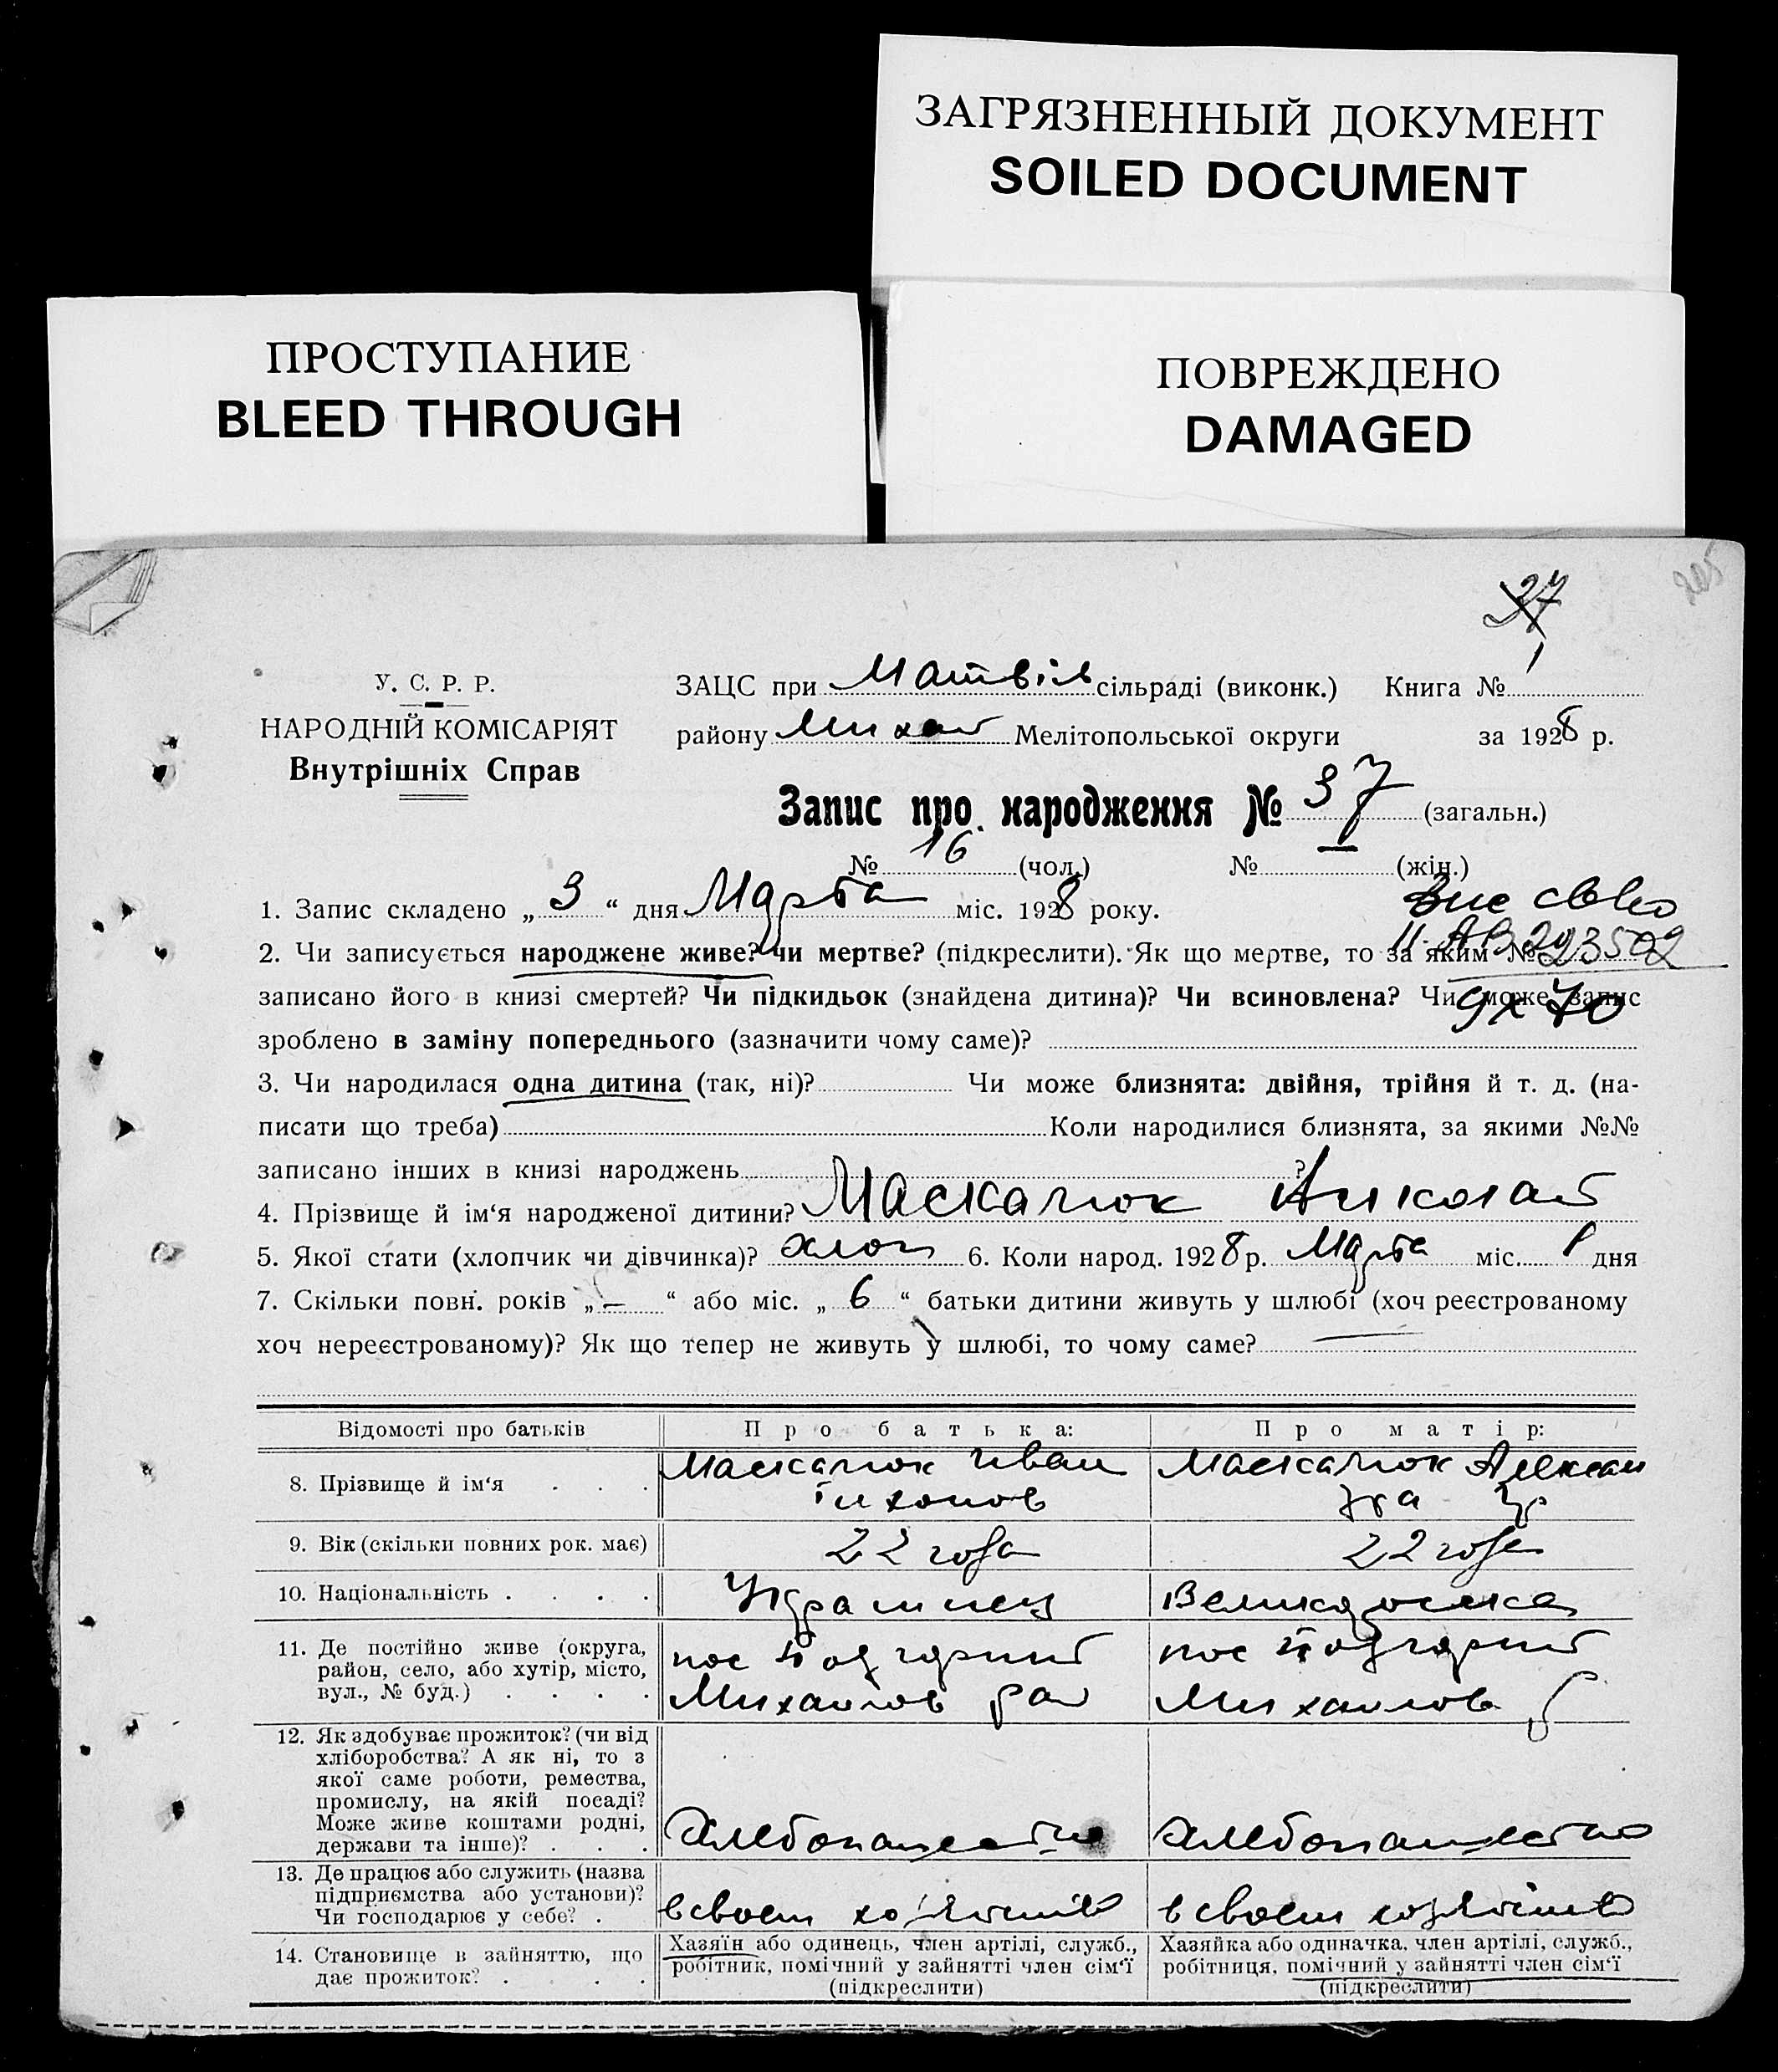 ЗАГРЯЗНЕННЫЙ ДОКУМЕНТ
SOILED DOCUMENT
ПРОСТУПАНИЕ
BLEED THROUGH
ПОВРЕЖДЕНО
DAMAGED
37
205
У. С. Р. Р.
НАРОДНІЙ КОМІСАРІЯТ
Внутрішніх Справ
ЗАЦС при Матвів сільраді (виконк.) Книга № 1
району Михай Мелітопольської округи за 1928 р.
Запис про народження № 37 (загальн.)
№ 16 (чол.) № — (жін.)
1. Запис складено „ 3 “ дня Марта міс. 1928 року.
Вис св-во
2. Чи записується народжене живе? чи мертве? (підкреслити). Як що мертве, то за яким №
II-АВ 293502
записано його в книзі смертей? Чи підкидьок (знайдена дитина)? Чи всиновлена? Чи може запис
9х70
зроблено в заміну попереднього (зазначити чому саме)?
3. Чи народилася одна дитина (так, ні)? Чи може близнята: двійня, трійня й т. д. (на-
писати що треба) Коли народилися близнята, за якими №№
записано інших в книзі народжень ?
4. Прізвище й ім‘я народженої дитини? Маскалюк Николай
5. Якої стати (хлопчик чи дівчинка)? хлоп 6. Коли народ. 1928 р. Марта міс. 1 дня
7. Скільки повн. років „ — “ або міс. „ 6 “ батьки дитини живуть у шлюбі (хоч реєстрованому
хоч нереєстрованому)? Як що тепер не живуть у шлюбі, то чому саме? —
Відомості про батьків Про батька: Про матір:
8. Прізвище й ім‘я . . . Маскалюк Иван Маскалюк Алексан
Тихонов дра
9. Вік (скільки повних рок. має) 22 года 22 года
10. Національність . . . . Украинец Великороска
11. Де постійно живе (округа, пос Подгорний пос Подгорний
район, село, або хутір, місто,
вул., № буд.) . . . . Михайлов рай Михайлов р
12. Як здобуває прожиток? (чи від
хліборобства? А як ні, то з
якої саме роботи, ремества,
промислу, на якій посаді?
Може живе коштами родні,
держави та інше)? . . . Хлебопашество Хлебопашество
13. Де працює або служить (назва
підприємства або установи)?
Чи господарює у себе? . в своем хозяйстве в своем хозяйстве
14. Становище в зайняттю, що
дає прожиток? . . . .
Хазяїн або одинець, член артілі, служб.,
робітник, помічний у зайнятті член сім‘ї
(підкреслити)
Хазяйка або одиначка, член артілі, служб.,
робітниця, помічний у зайнятті член сім‘ї
(підкреслити)